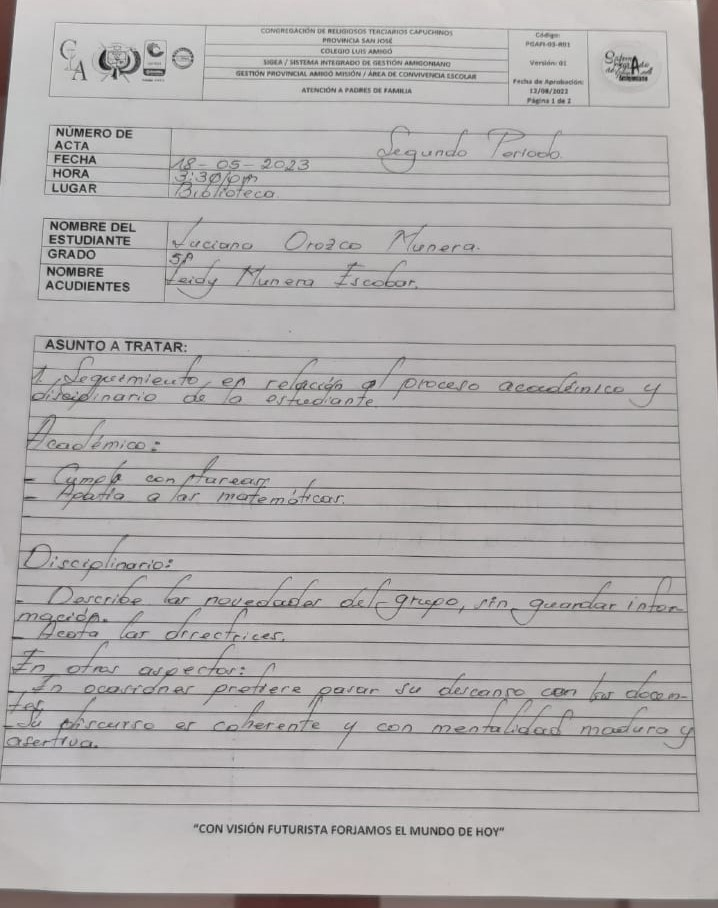 CONGREGACIÓN DE RELIGIOSOS TERCIARIOS CAPUCHINOS
PROVINCIA SAN JOSÉ
COLEGIO LUIS AMIGÓ
SIGEA / SISTEMA INTEGRADO DE GESTIÓN AMIGONIANO
GESTIÓN PROVINCIAL AMIGÓ MISIÓN / ÁREA DE CONVIVENCIA ESCOLAR
ATENCIÓN A PADRES DE FAMILIA
Código:
PGAM-03-R01
Versión: 01
Fecha de Aprobación:
12/08/2022
Página 1 de 2
NÚMERO DE
ACTA
Segundo Periodo.
FECHA 18-05-2023
HORA 3:30 pm
LUGAR Biblioteca.
NOMBRE DEL
ESTUDIANTE Luciana Orozco Munera.
GRADO 5A
NOMBRE
ACUDIENTES Leidy Munera Escobar.
ASUNTO A TRATAR:
1. Seguimiento, en relación al proceso académico y
disciplinario de la estudiante
Académico:
- Cumple con tareas
- Apatía a las matemáticas.
-
Disciplinario:
- Describe las novedades del grupo, sin guardar infor-
mación.
- Acata las directrices.
En otros aspectos:
- En ocasiones prefiere pasar su descanso con los docen-
tes.
- Su discurso es coherente y con mentalidad madura y
asertiva.
"CON VISIÓN FUTURISTA FORJAMOS EL MUNDO DE HOY"